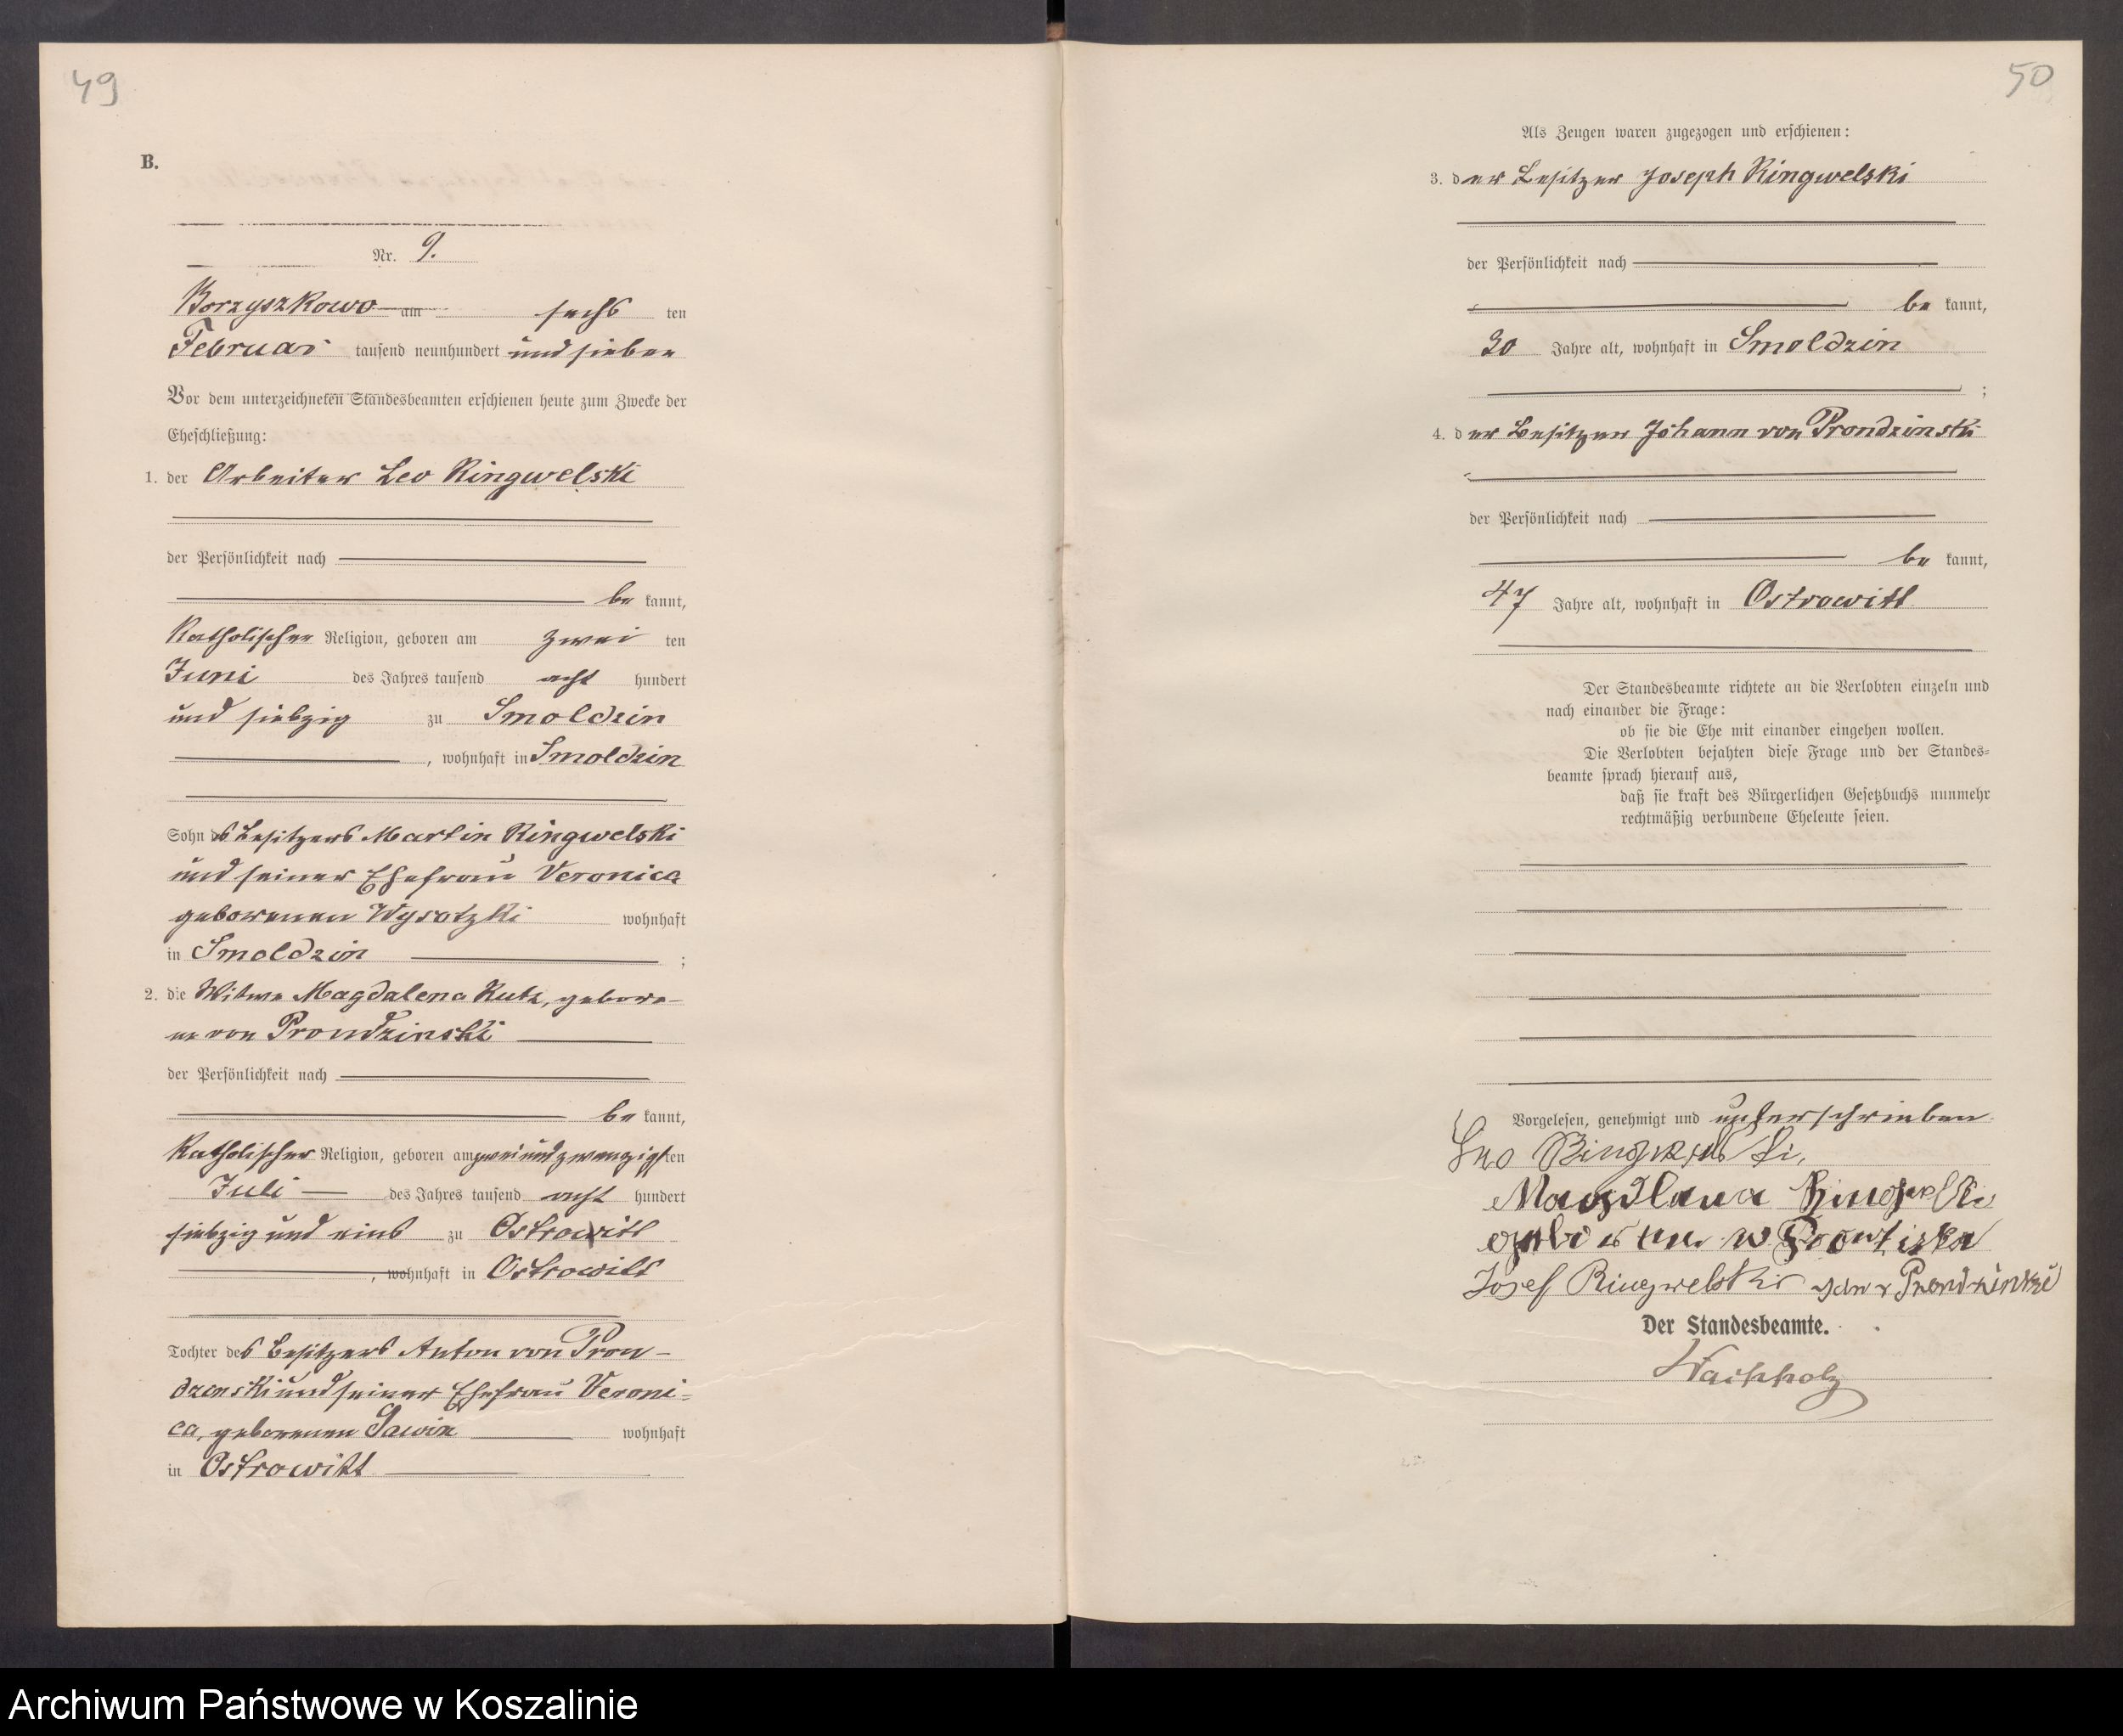 49
B.
Nr. 9.
Borzyszkowo am sechs ten
Februar tausend neunhundert und sieben
Vor dem unterzeichneten Standesbeamten erschienen heute zum Zwecke der
Eheschließung:
1. der Arbeiter Leo Ringwelski
der Persönlichkeit nach
be kannt,
Katholischer Religion, geboren am zwei ten
Juni des Jahres tausend acht hundert
und siebzig zu Smoldzin
, wohnhaft in Smoldzin
Sohn des Besitzers Martin Ringwelski
und seiner Ehefrau Veronica
geborenen Wysotzki wohnhaft
in Smoldzin ;
2. die Witwe Magdalena Kutz, gebore-
ne von Prondzinski
der Persönlichkeit nach
be kannt,
Katholischer Religion, geboren am zweiundzwanzigsten
Juli des Jahres tausend acht hundert
siebzig und eins zu Ostrowitt
, wohnhaft in Ostrowitt
Tochter des Besitzers Anton von Pron-
dzinski und seiner Ehefrau Veroni-
ca, geborenen wohnhaft
in Ostrowitt
50
Als Zeugen waren zugezogen und erschienen:
3. der Besitzer Joseph Ringwelski
der Persönlichkeit nach
be kannt,
30 Jahre alt, wohnhaft in Smoldzin
;
4. der Besitzer Johann von Prondzinski
der Persönlichkeit nach
be kannt,
47 Jahre alt, wohnhaft in Ostrowitt
Der Standesbeamte richtete an die Verlobten einzeln und
nach einander die Frage:
ob sie die Ehe mit einander eingehen wollen.
Die Verlobten bejahten diese Frage und der Standes=
beamte sprach hierauf aus,
daß sie kraft des Bürgerlichen Gesetzbuchs nunmehr
rechtmäßig verbundene Eheleute seien.
Vorgelesen, genehmigt und unterschrieben
Leo Ringwelski,
Magdlana Ringwelski
Josef Ringwelski
Der Standesbeamte.
Wachholz
Archiwum Państwowe w Koszalinie